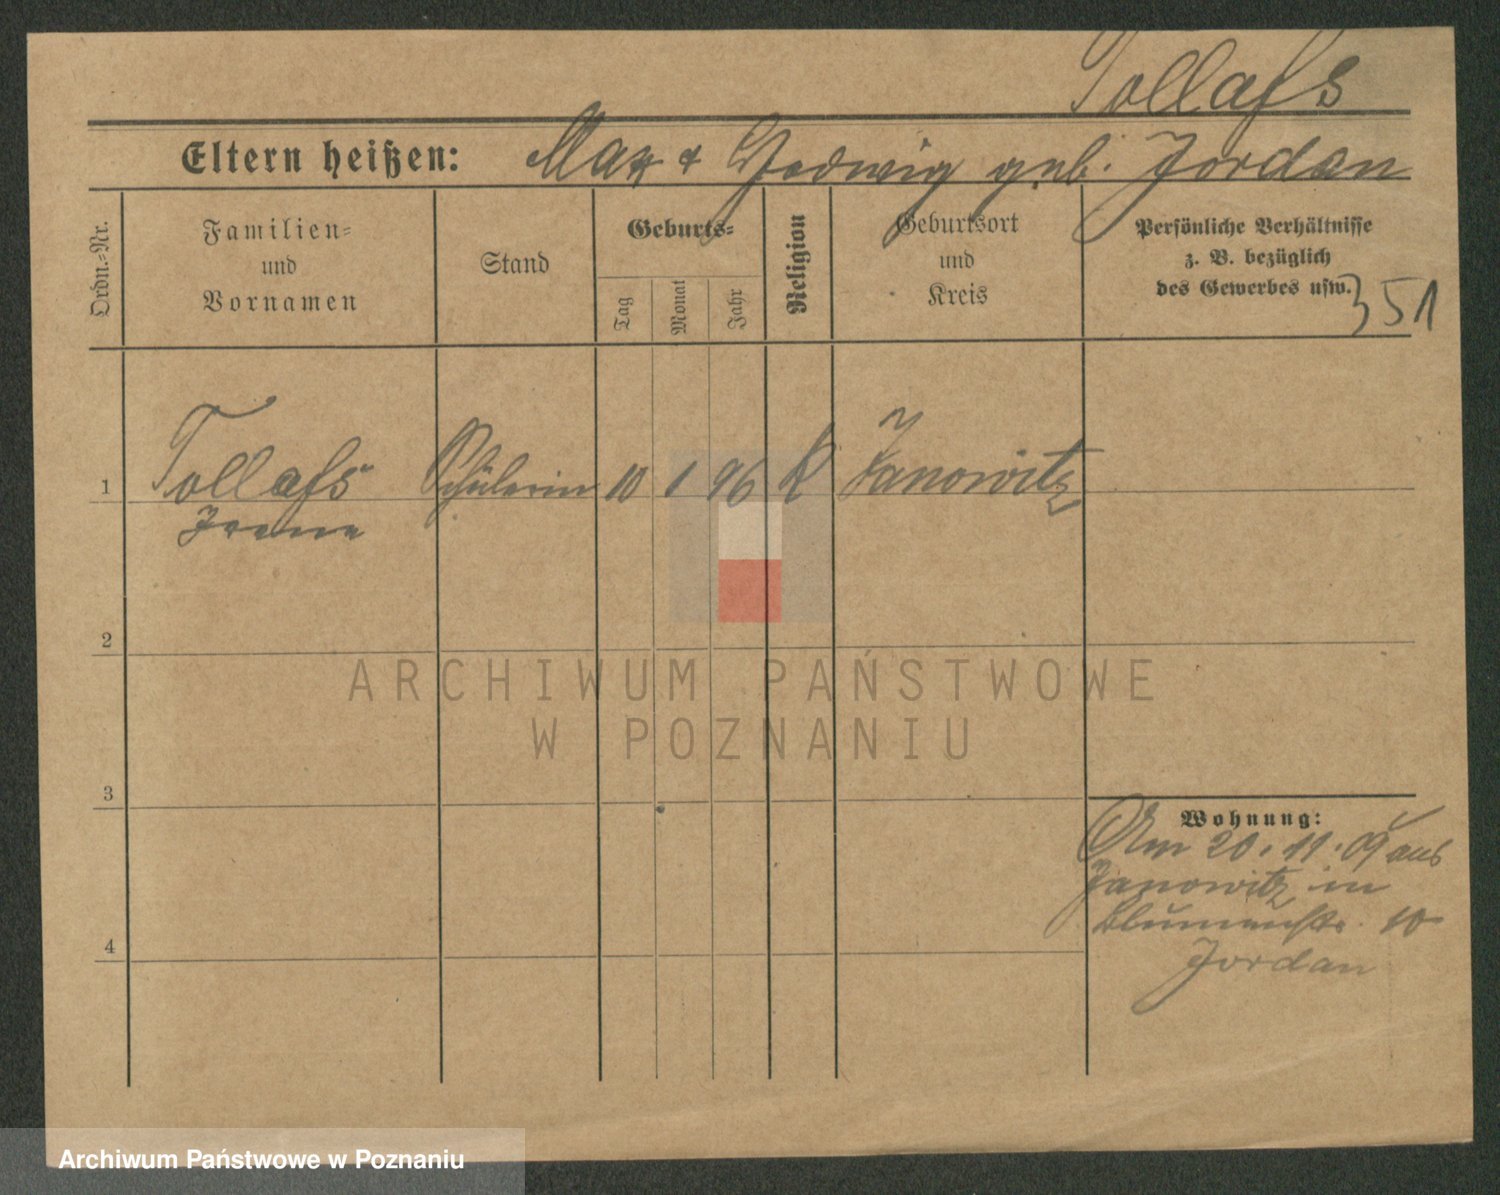 Tollafs
Eltern heißen: Max & Hedwig geb. Jordan
Ordn.-Nr.
Familien- und Vornamen
Stand
Geburts-
Tag
Monat
Jahr
Religion
Geburtsort und Kreis
Persönliche Verhältnisse
z. B. bezüglich
des Gewerbes usw.
351
1 Tollafs Schülerin 10 1 96 K Janowitz
Irene
2
3
4
Wohnung:
Am 20.11.09 aus
Janowitz in
Blumenstr. 10
Jordan
ARCHIWUM PAŃSTWOWE
W POZNANIU
Archiwum Państwowe w Poznaniu